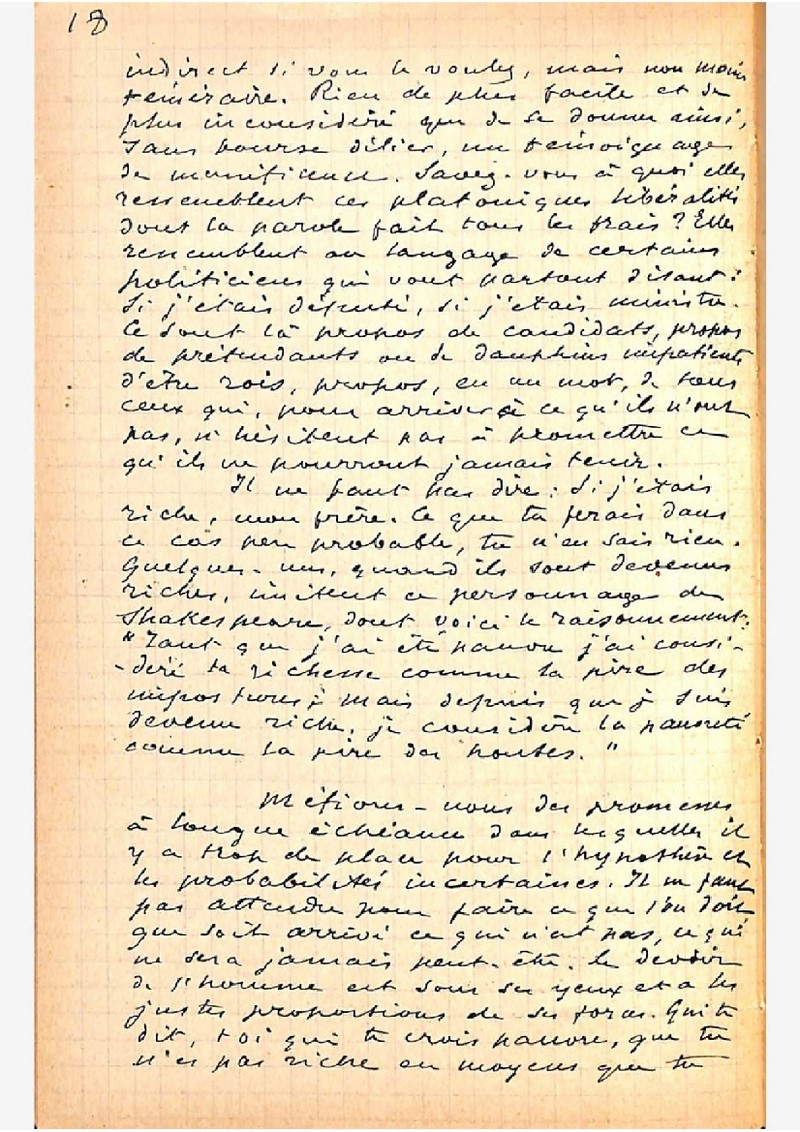 18
indirect si vous le voulez, mais non moins
téméraire. Rien de plus facile et de
plus inconsidéré que de se donner ainsi,
sans bourse délier, un témoignage
de munificence. Savez-vous à quoi elles
ressemblent ces platoniques libéralités
dont la parole fait tous les frais ? Elles
ressemblent au langage de certains
politiciens qui vont partout disant :
Si j'étais député, si j'étais ministre.
Ce sont là propos de candidats, propos
de prétendants ou de dauphins impatients
d'être rois, propos, en un mot, de tous
ceux qui, pour arriver à ce qu'ils n'ont
pas, n'hésitent pas à promettre ce
qu'ils ne pourront jamais tenir.
Il ne faut pas dire : Si j'étais
riche, mon frère. Ce que tu ferais dans
ce cas peu probable, tu n'en sais rien.
Quelques-uns, quand ils sont devenus
riches, imitent ce personnage de
Shakespeare, dont voici le raisonnement :
"Tant que j'ai été pauvre j'ai consi-
-déré la richesse comme la pire des
impostures ; mais depuis que je suis
devenu riche, je considère la pauvreté
comme la pire des hontes."
Méfions-nous des promesses
à longue échéance dans lesquelles il
y a trop de place pour l'hypothèse et
les probabilités incertaines. Il ne faut
pas attendre pour faire ce que l'on doit
que soit arrivé ce qui n'est pas, ce qui
ne sera jamais peut-être. Le devoir
de l'homme est sous ses yeux et a les
justes proportions de ses forces. Qui te
dit, toi qui te crois pauvre, que tu
n'es pas riche en moyens que tu